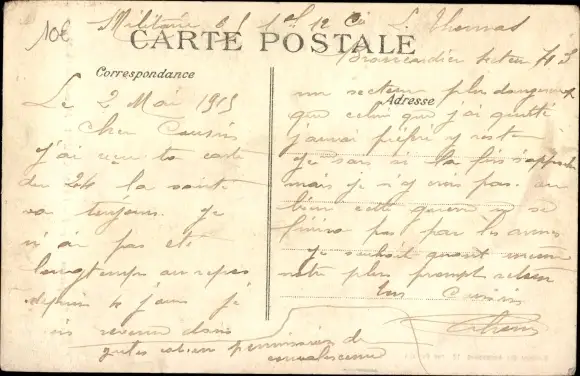 10€
Militaire 1er 12 Cie L. Thomas
CARTE POSTALE
Brancardier secteur
Correspondance
Adresse
Le 2 Mai 1915
Cher Cousin
J'ai reçu ta carte
du 24 la santé
va toujours. Je
n'ai pas été
longtemps au repos
depuis 4 jours je
suis revenu dans
un secteur plus dangereux
que celui que j'ai quitté
j'aurai préféré y rester
Je sais si la fin s'approche
mais je n'y crois pas. ou
bien cette guerre ne se
finira pas par les armes
Je souhait quand même
notre plus prompt retour
ton Cousin
permission de
convalescence